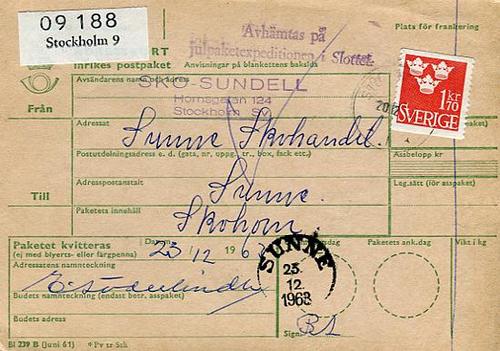 09 188
Stockholm 9
Avhämtas på
julpaketexpeditionen i Slottet.
Plats för frankering
Inrikes postpaket
Anvisningar på blankettens baksida
Avsändarens namn och adress
SKO-SUNDELL
Hornsgatan 124
Stockholm
Från
1 kr 70
SVERIGE
Adressat
Sunne Skohandel.
Postutdelningsadress e. d. (gata, nr, uppg., tr., box, fack etc.)
Assbelopp kr
Till
Adresspostanstalt
Sunne.
Leg.sätt (för asspaket)
Paketets innehåll
Skohorn
Paketet kvitteras
(ej med blyerts- eller färgpenna)
23/12 19
Paketets ank.dag
Vikt i kg
Adressatens namnteckning
SUNNE
23.
12.
1963
Budets namnteckning (endast betr. asspaket)
Budets adress
Sign.
Bl 239 B (Juni 61)